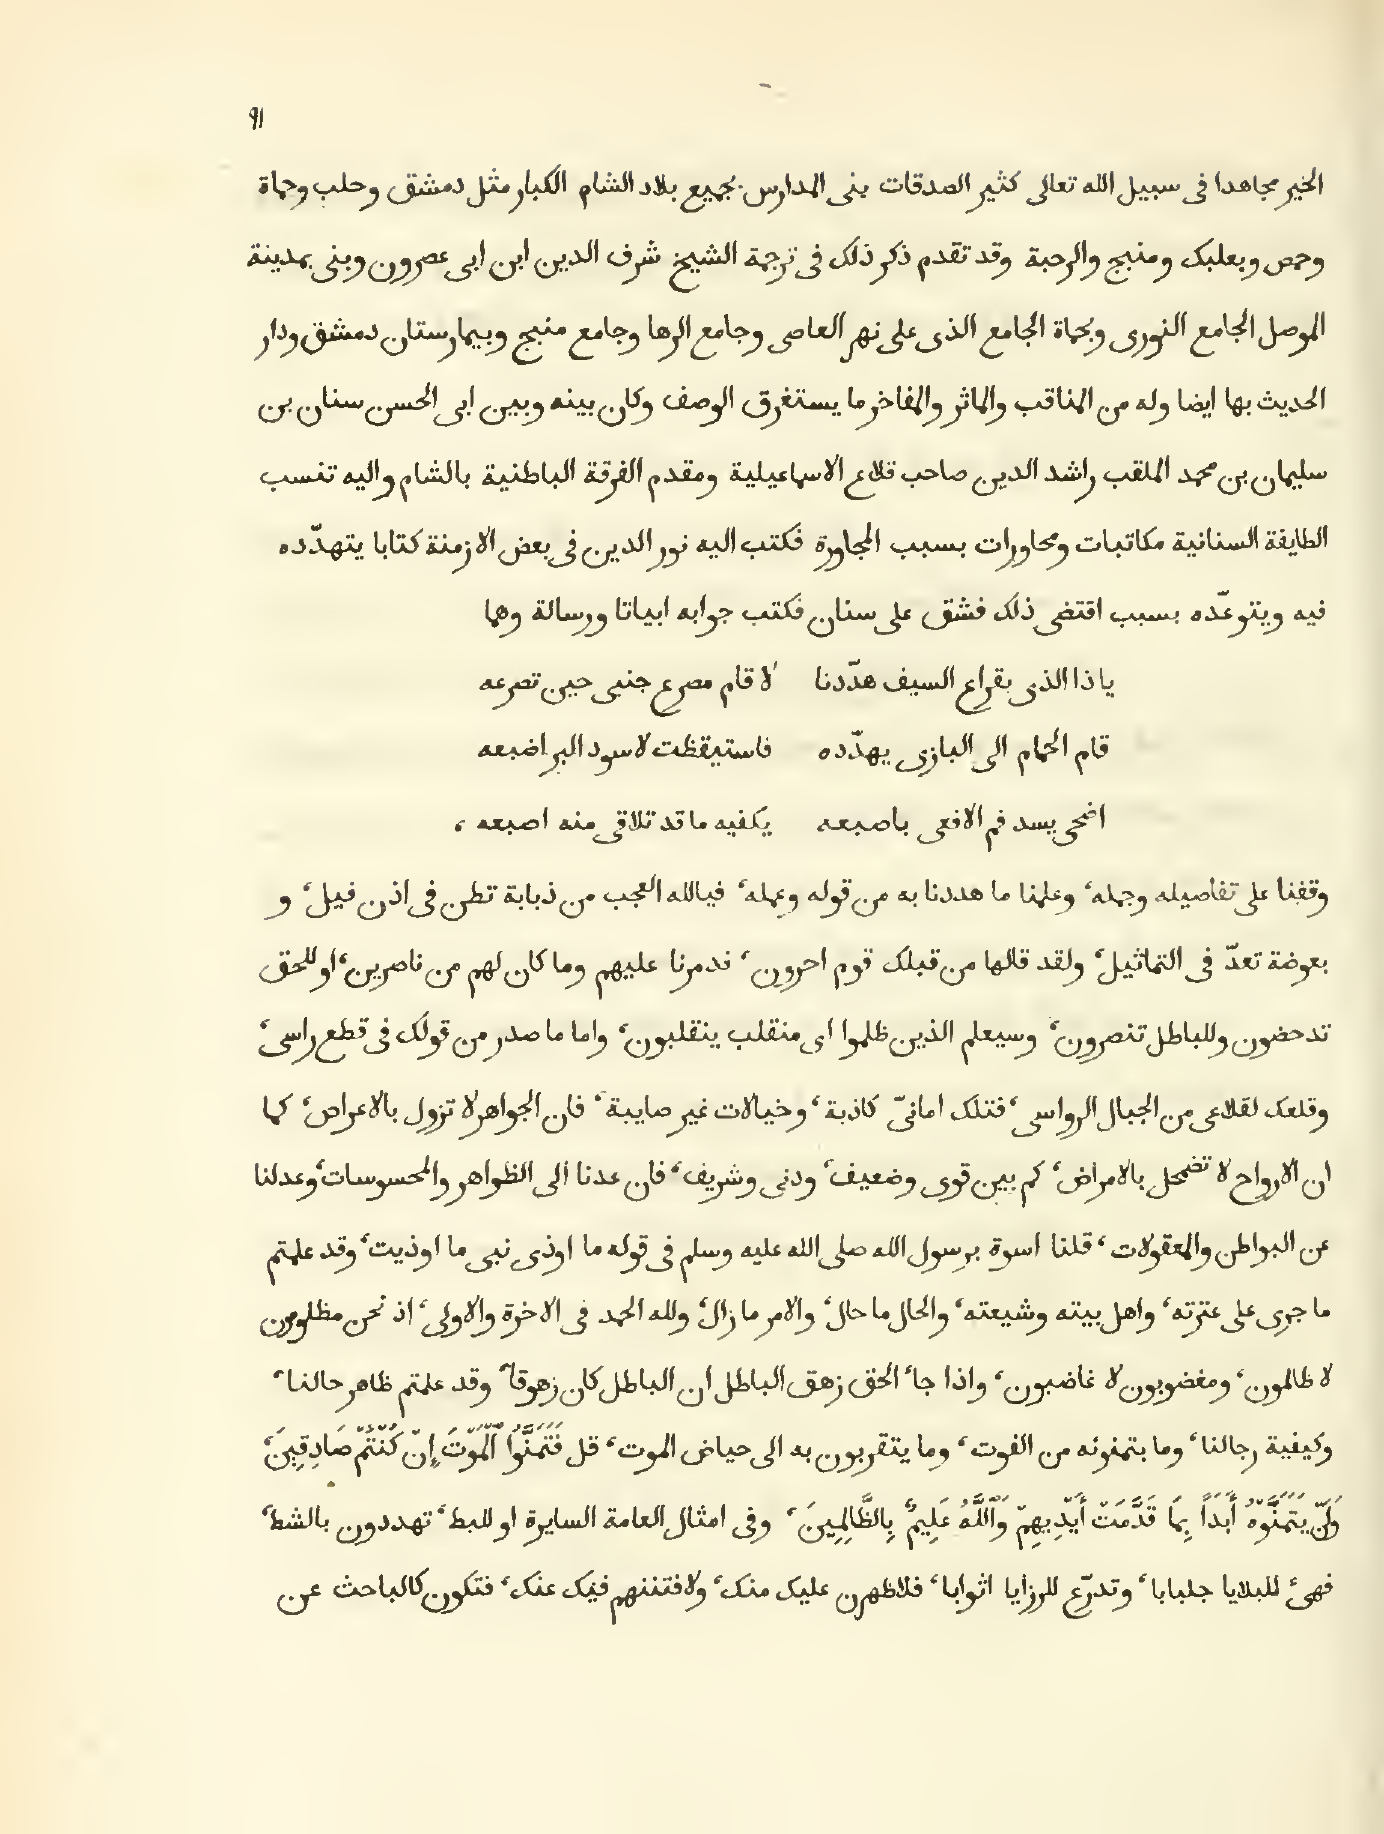 ٩١
الخير مجاهدا فى سبيل الله تعالى كثير الصدقات بنى المدارس بجميع بلاد الشام الكبار مثل دمشق وحلب وحماة
وحمص وبعلبك ومنبج والرحبة وقد تقدم ذكر ذلك فى ترجمة الشيخ شرف الدين ابن ابى عصرون وبنى بمدينة
الموصل الجامع النورى وبحماة الجامع الذى على نهر العاصى وجامع الرها وجامع منبج وبيمارستان دمشق ودار
الحديث بها ايضا وله من المناقب والماثر والمفاخر ما يستغرق الوصف وكان بينه وبين ابى الحسن سنان بن
سليمان بن محمد الملقب راشد الدين صاحب قلاع الاسماعيلية ومقدم الفرقة الباطنية بالشام واليه تنسب
الطايفة السنانية مكاتبات ومحاورات بسبب المجاورة فكتب اليه نور الدين فى بعض الازمنة كتابا يتهدّده
فيه ويتوعّده بسبب اقتضى ذلك فشق على سنان فكتب جوابه ابياتا ورسالة وهما
يا ذا الذى بقراع السيف هدّدنا لا قام مصرع جنبى حين تصرعه
قام الحمام الى البازى يهدّده فاستيقظت لاسود البر اضبعه
اضحى يسد فم الافعى باصبعه يكفيه ما قد تلاقى منه اصبعه ،
وقفنا على تفاصيله وجمله، وعلمنا ما هددنا به من قوله وعمله، فيالله العجب من ذبابة تطن فى اذن فيل، و
بعوضة تعدّ فى التماثيل، ولقد قالها من قبلك قوم اخرون، فدمرنا عليهم وما كان لهم من ناصرين، او للحق
تدحضون وللباطل تنصرون، وسيعلم الذين ظلموا اى منقلب ينقلبون، واما ما صدر من قولك فى قطع راسى،
وقلعك لقلاعى من الجبال الرواسى، فتلك امانىّ كاذبة، وخيالات غير صايبة، فان الجواهر لا تزول بالاعراض، كما
ان الارواح لا تضمحل بالامراض، كم بين قوى وضعيف، ودنى وشريف، فان عدنا الى الظواهر والمحسوسات، وعدلنا
عن البواطن والمعقولات، قلنا اسوة برسول الله صلى الله عليه وسلم فى قوله ما اوذى نبى ما اوذيت، وقد علمتم
ما جرى على عترته، واهل بيته وشيعته، والحال ما حال، والامر ما زال، ولله الحمد فى الاخرة والاولى، اذ نحن مظلومون
لا ظالمون، ومغضوبون لا غاضبون، واذا جاء الحق زهق الباطل ان الباطل كان زهوقا، وقد علمتم ظاهر حالنا،
وكيفية رجالنا، وما يتمنونه من الفوت، وما يتقربون به الى حياض الموت، قل فَتَمَنَّوُا ٱلْمَوْتَ إِنْ كُنْتُمْ صَادِقِينَ،
وَلَنْ يَتَمَنَّوْهُ أَبَدًا بِمَا قَدَّمَتْ أَيْدِيهِمْ وَٱللَّهُ عَلِيمٌ بِالظَّالِمِينَ، وفى امثال العامة السايرة او للبط، تهددون بالشط،
فهىء للبلايا جلبابا، وتدرّع للرزايا اثوابا، فلاظهرن عليك منك، ولافتننهم فيك عنك، فتكون كالباحث عن